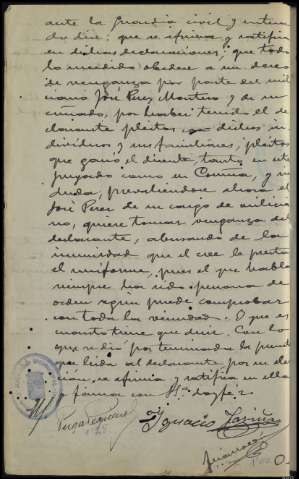 ante la Guardia civil y entera-
do dice: que se afirma y ratifica
en dichas declaraciones; que todo
lo sucedido obedece a un deseo
de venganza por parte del mili-
ciano José Perez Montero y de su
cuñado, por haber tenido el de-
clarante pleitos con dichos in-
dividuos y sus familiares, pleitos
que ganó el dicente tanto en este
juzgado como en Coruña, y sin
duda, prevaliendose ahora el
José Perez de su cargo de milicia-
no, quiere tomar venganza del
declarante, abusando de la
inmunidad que el cree le presta
el uniforme, pues el que habla
siempre ha sido persona de
orden segun puede comprobar
con toda la vecindad. O que es
cuanto tiene que decir. Con lo
que se dió por terminada la presente
que leida al declarante por su elec-
ción, se afirma y ratifica en ella
y firma con S.Sª doy fé.
Ignacio